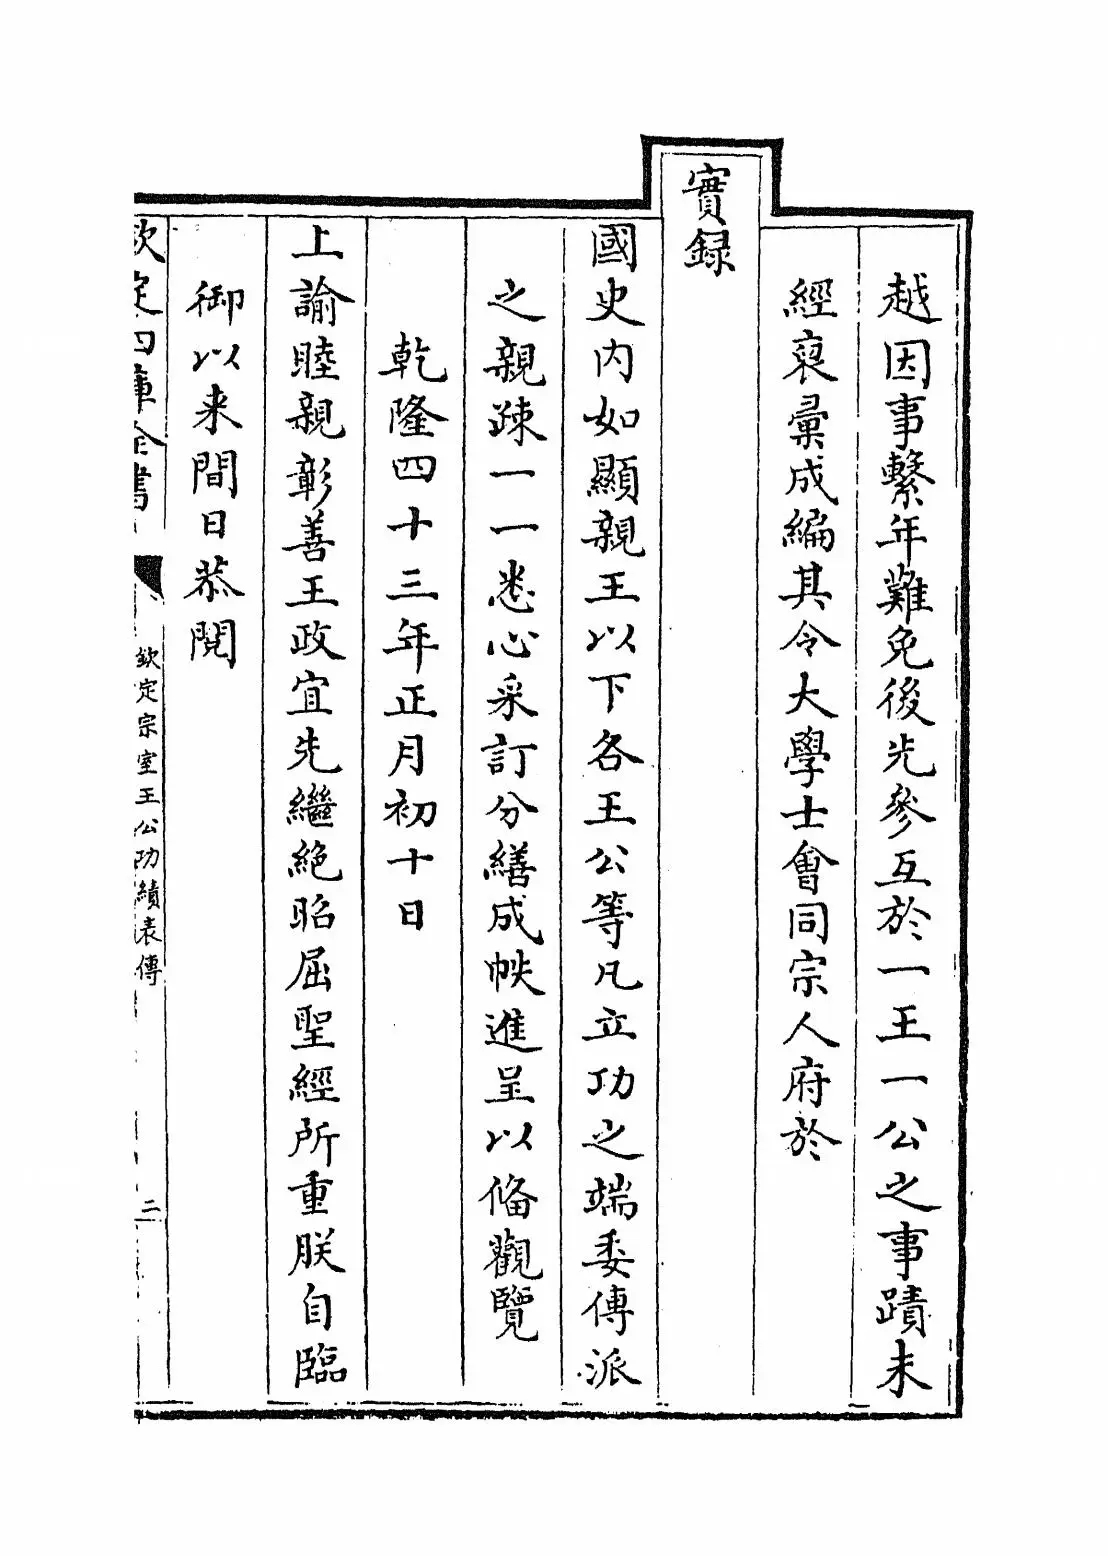 越因事繫年難免後先參互於一王一公之事蹟未
經裒彙成編其令大學士會同宗人府於
實録
國史内如顯親王以下各王公等凡立功之端委傳派
之親疎一一悉心采訂分繕成帙進呈以俻觀覽
乾隆四十三年正月初十日
上諭睦親彰善王政宜先繼絶昭屈聖經所重朕自臨
御以来間日恭閱
欽定四庫全書
欽定宗室王公功績表傳
二